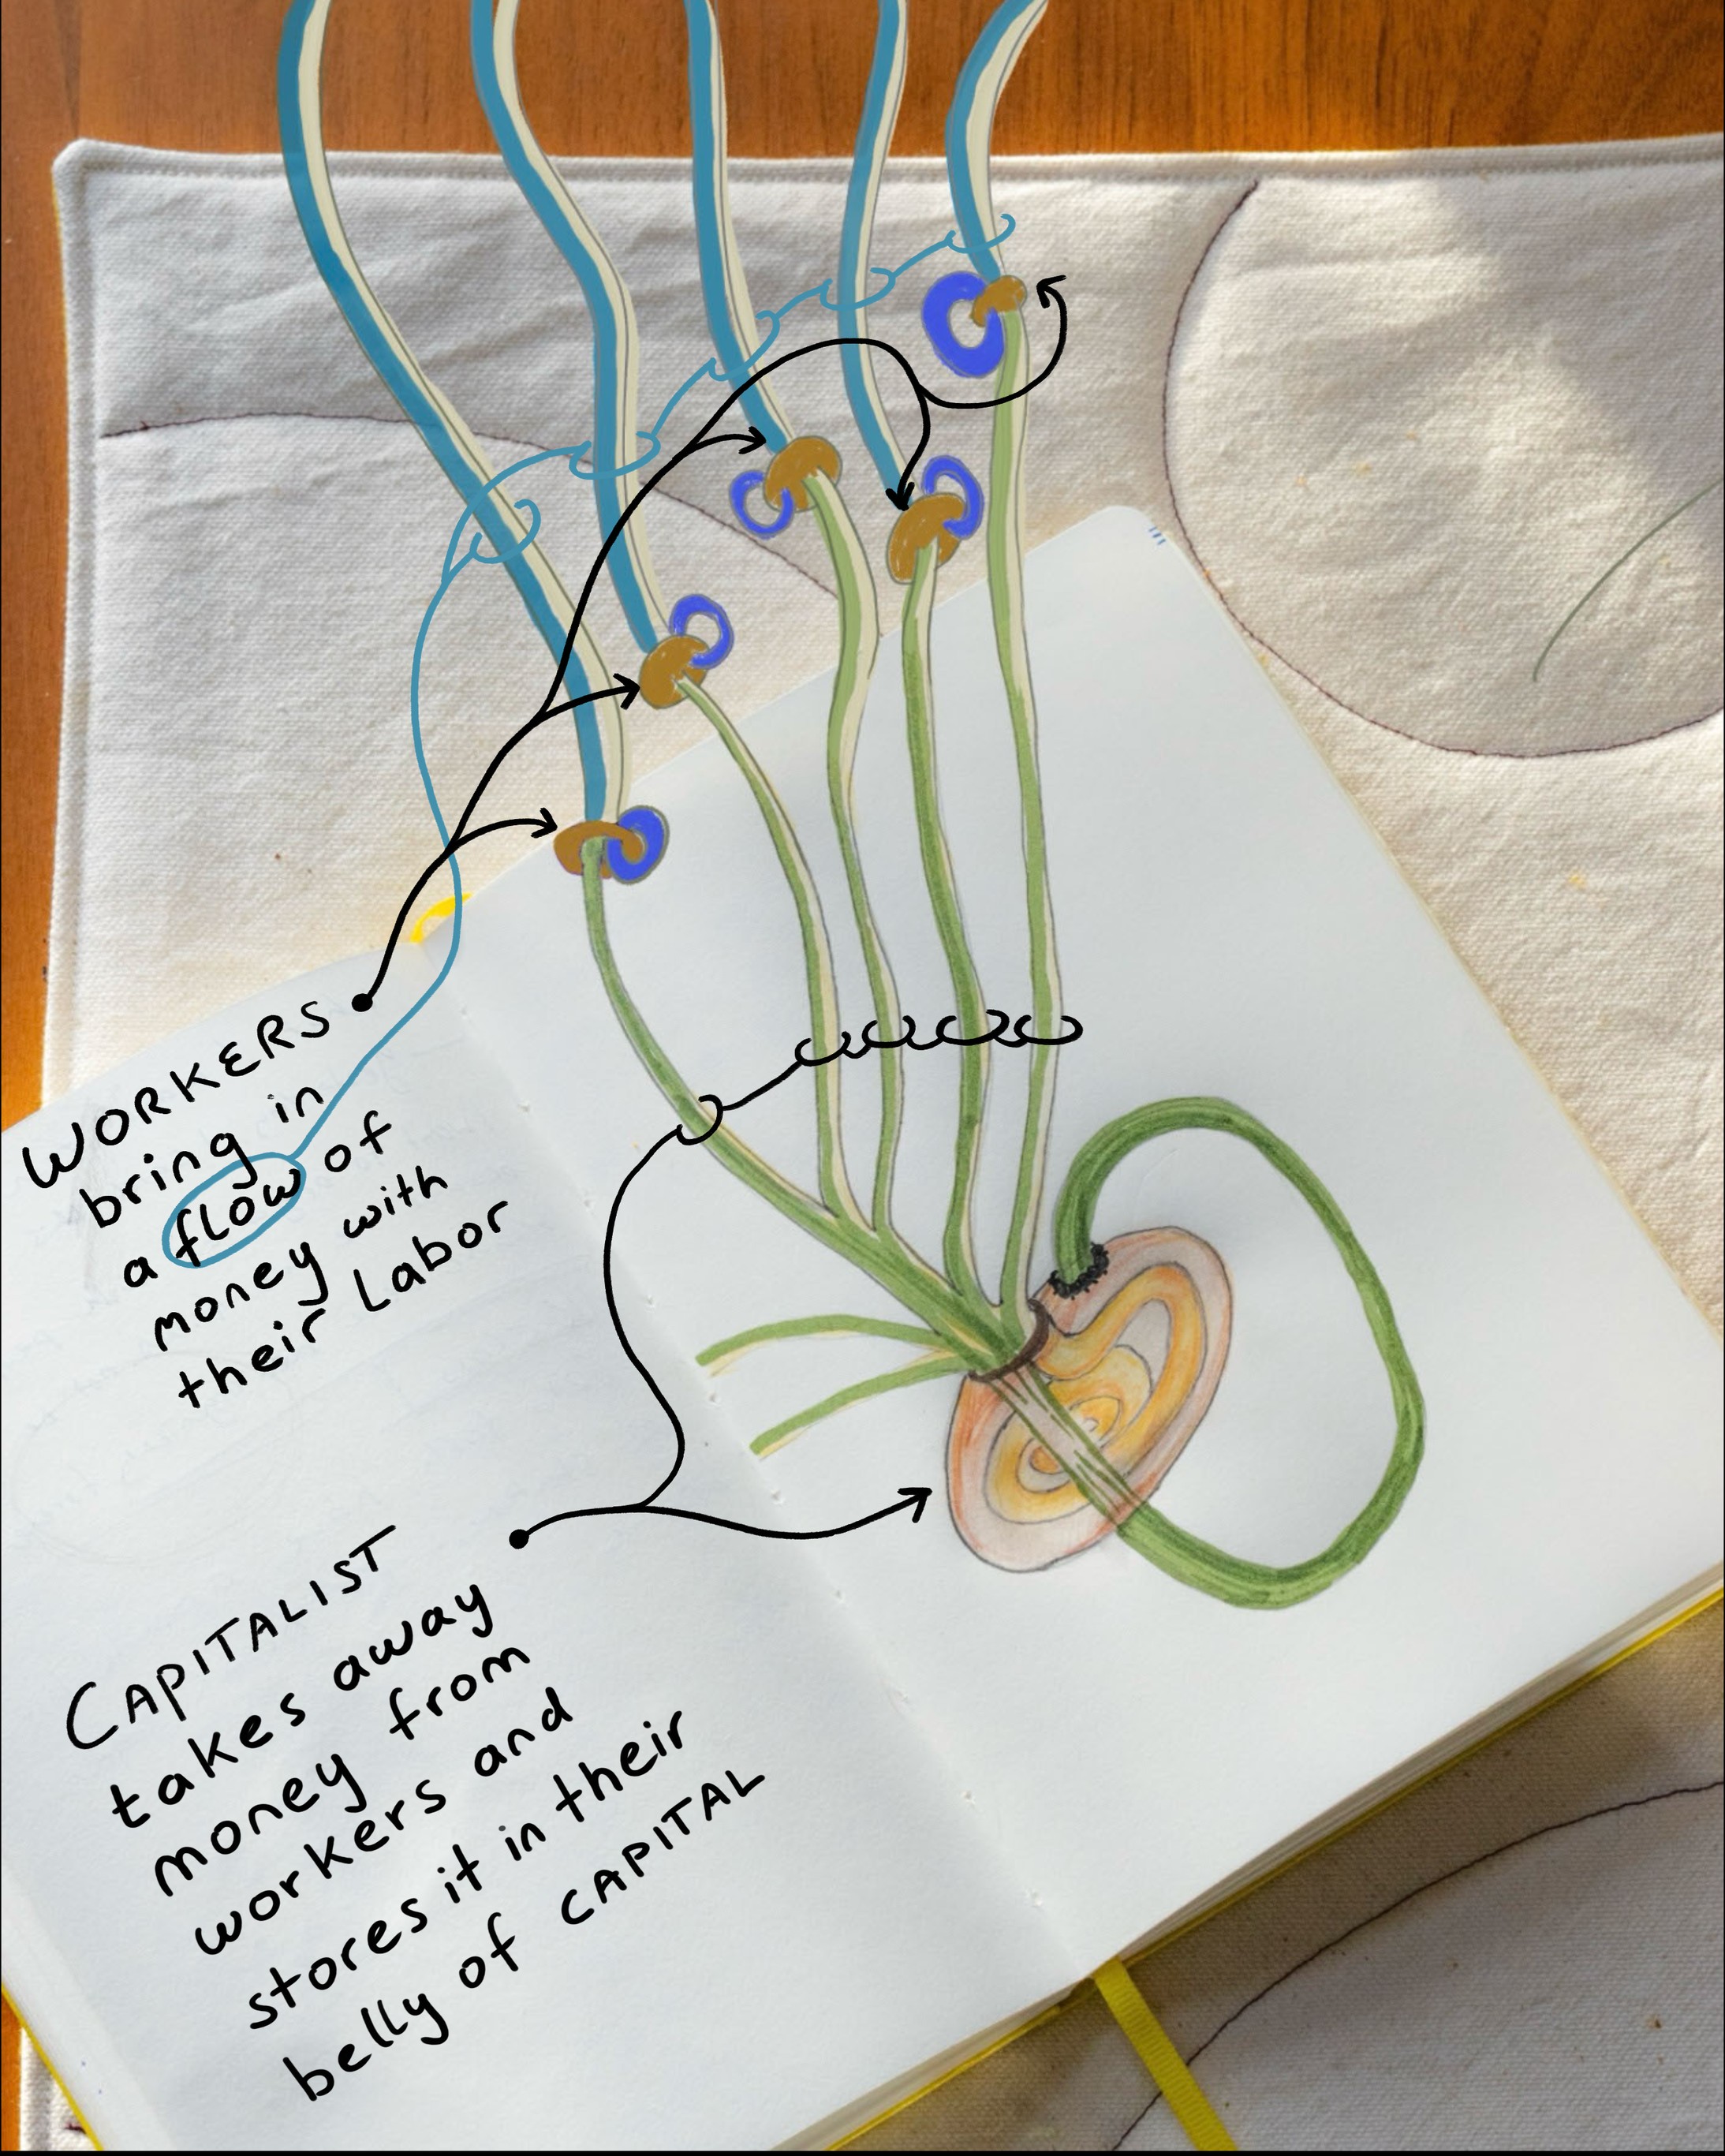 WORKERS
bring in
a flow of
money with
their Labor
CAPITALIST
takes away
money from
workers and
stores it in their
belly of CAPITAL